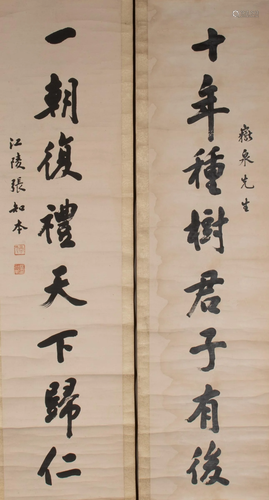 嶽泉先生
十年種樹君子有後
一朝復禮天下歸仁
江陵張知本